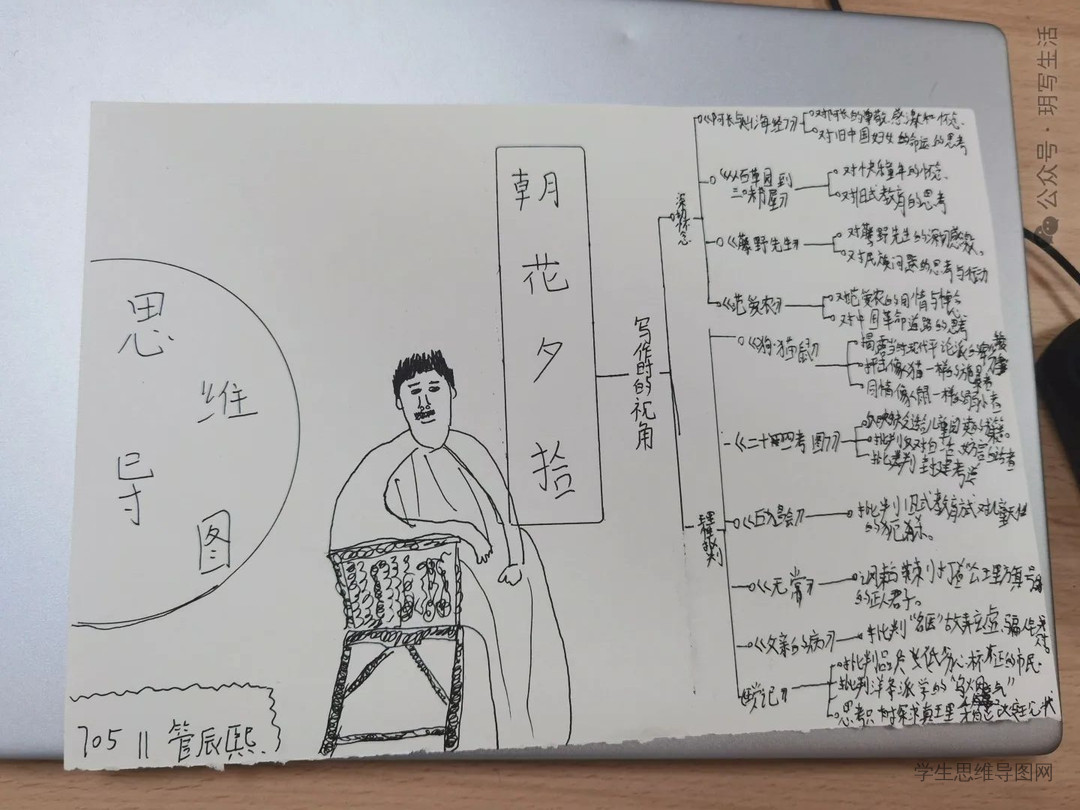 思
维
导
图
705 11 管辰熙
朝
花
夕
拾
写作时的视角
深切怀念
《阿长与山海经》
对阿长的尊敬、感激和怀念
对旧中国妇女的命运的思考
《从百草园到
三味书屋》
对快乐童年的怀念
对旧式教育的思考
《藤野先生》
对藤野先生的深切感激。
对民族问题的思考与行动
《范爱农》
对范爱农的同情与悼念
对中国革命道路的思考
理性批判
《狗·猫·鼠》
揭露当时现代评论派
抨击像猫一样的
同情像鼠一样的弱小者
《二十四孝图》
批判反对白话
批判封建孝道
《五猖会》
批判旧式教育方式对儿童天性
的扼杀。
《无常》
讽刺打着“公理”旗号
的正人君子。
《父亲的病》
批判“名医”故弄玄虚、骗
《琐记》
批判品质低劣心术不正的市民
批判洋务派学的“乌烟瘴气”
思考探求真理
公众号·玥写生活
学生思维导图网